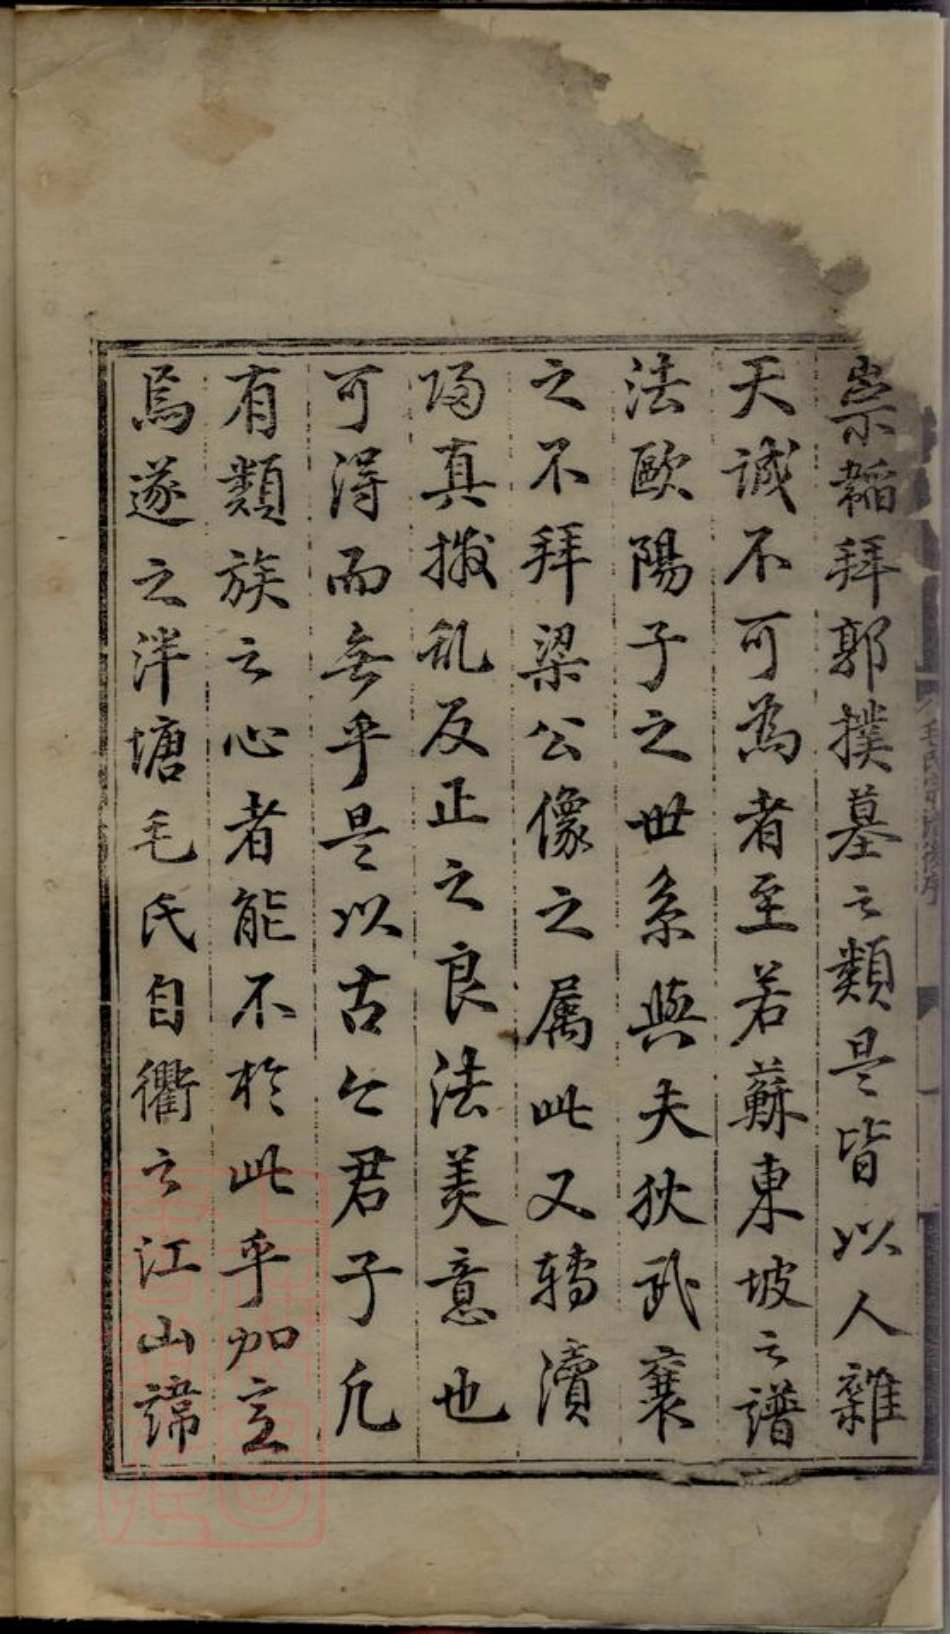 崇韜拜郭撲墓之類是皆以人雜
天誠不可為者至若蘇東坡之譜
法歐陽子之世系與夫狄武襄
之不拜梁公像之属此又轉瀆
歸真撥乱反正之良法美意也
可得而無乎是以古今君子凡
有類族之心者能不於此乎加意
焉遂之泮塘毛氏自衢之江山諱
毛氏譜後序